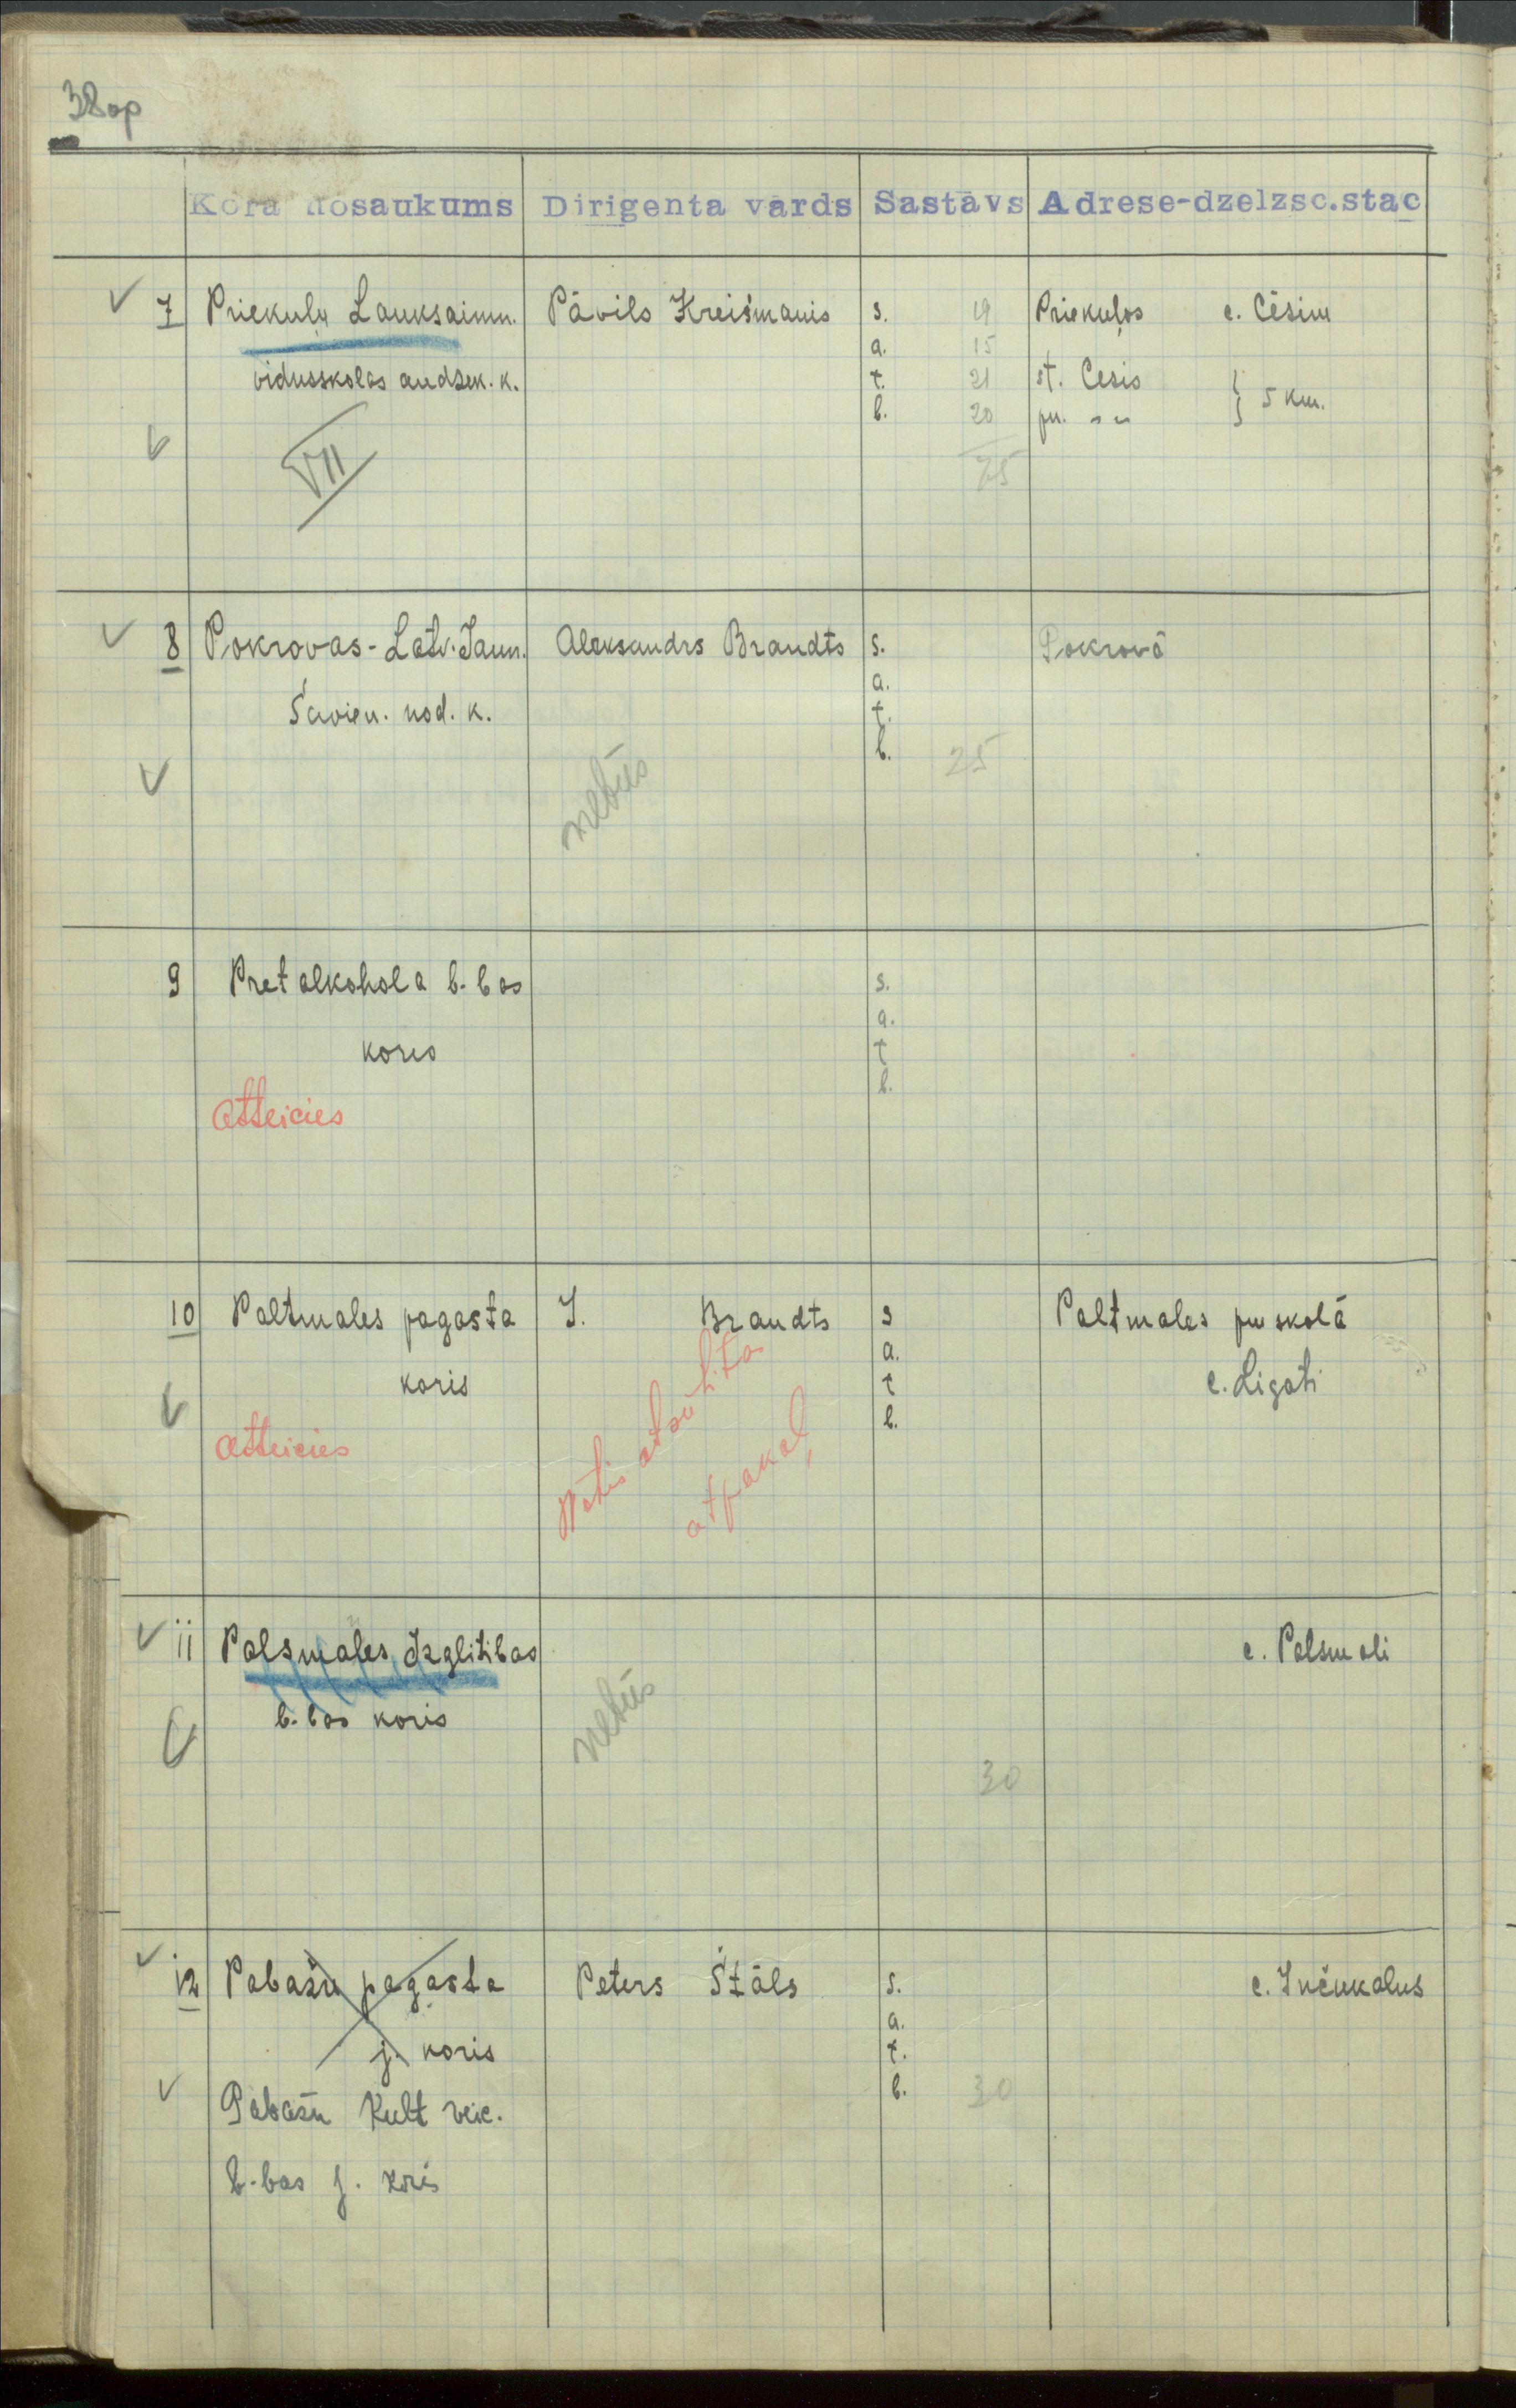 38op
Kora nosaukums Dirigenta vārds Sastāvs Adrese-dzelzsc.stac
7 Priekuļu Lauksaimn. Pāvils Kreišmanis s. 19 Priekuļos c. Cēsim
a. 15
vidusskolas audzek. k. t. 21 st. Cesis } 5 km.
b. 20 pu. " "
VII 75
8 Pokrovas-Latv. Jaun. Aleksandrs Brandts s. Pokrovā
a.
Savien. nod. k. t.
b. 25
nebūs
9 Pretalkohola b-bas s.
a.
koris t
b.
Atteicies
10 Paltmales pagasta J. Brandts s Paltmales pu skolā
a.
koris t c. Ligati
b.
Atteicies Notis atsūtītas
atpakaļ
11 Palsmales Izglitibas c. Palsmali
b-bas koris nebūs
30
12 Pabažu pagasta Peters Štāls s. c. Inčukalus
a.
j. koris t.
b. 30
Pabažu Kult veic.
b-bas j. koris